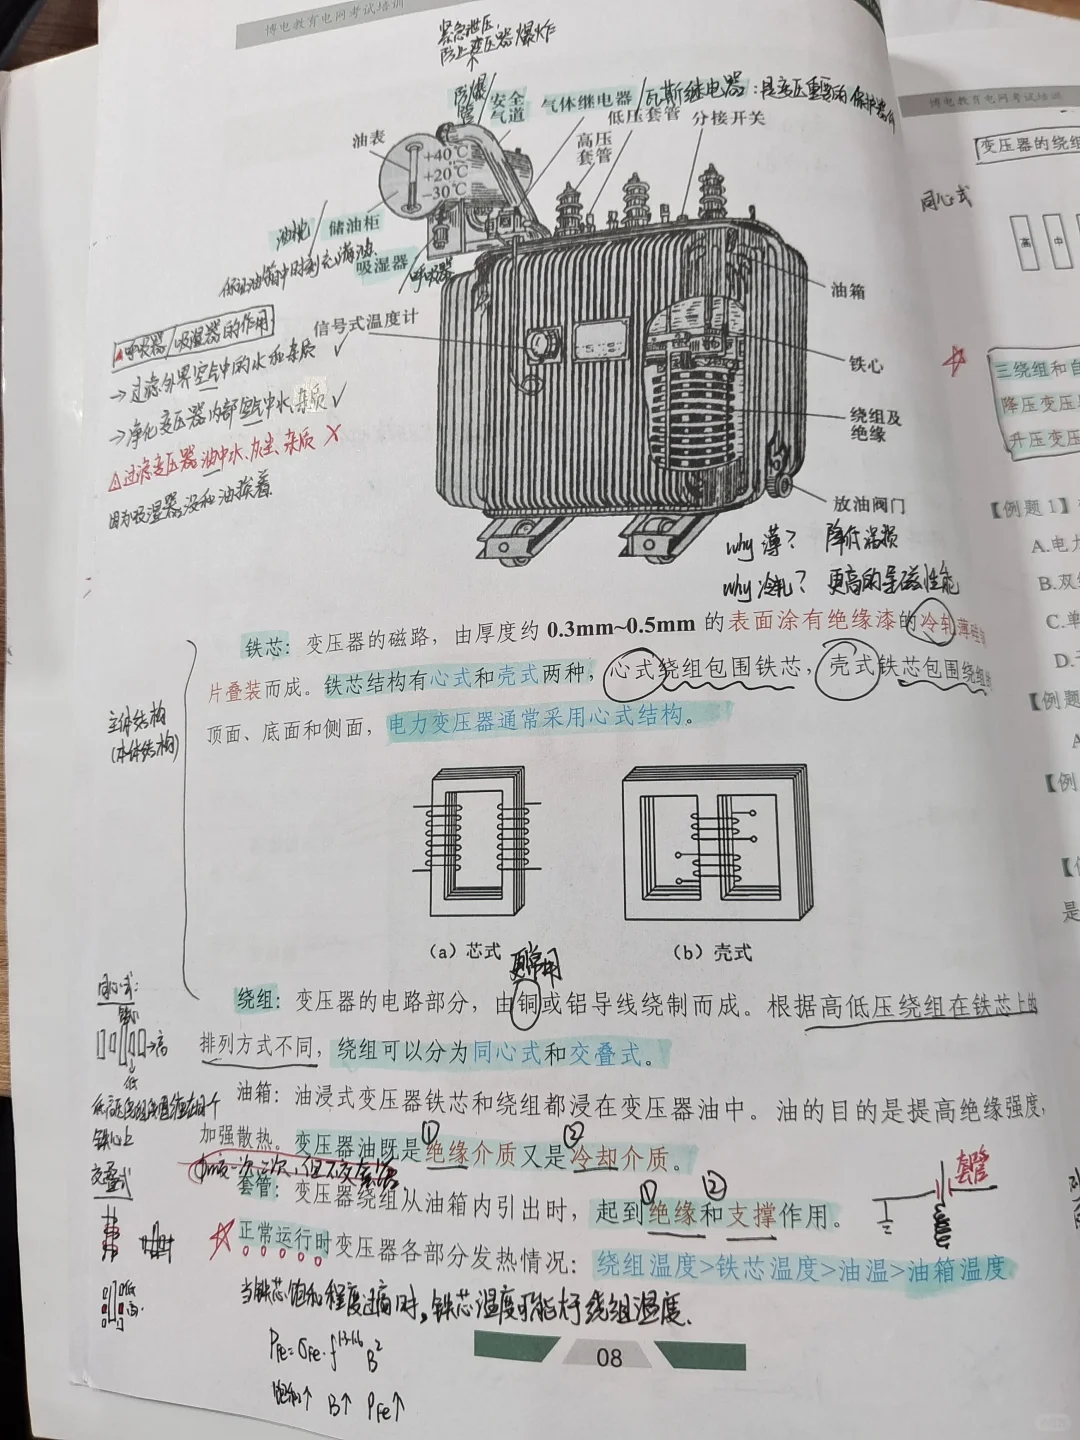 博电教育电网考试培训
紧急泄压,
防止变压器爆炸
防爆管/
安全气道
气体继电器/瓦斯继电器:是变压重要的保护器件
油表
低压套管
分接开关
高压套管
+40℃
+20℃
-30℃
油枕/
储油柜
保证油箱中时刻充满油.
吸湿器/呼吸器
信号式温度计
油箱
铁心
绕组及绝缘
放油阀门
呼吸器/吸湿器的作用
→过滤外界空气中的水和杂质 ✓
→净化变压器内部空气中水、杂质 ✓
过滤变压器油中水、灰尘、杂质 ✗
因为吸湿器没和油挨着
why 薄? 降低涡损
why 冷轧? 更高的导磁性能
主体结构
(本体结构)
铁芯:变压器的磁路,由厚度约 0.3mm~0.5mm 的表面涂有绝缘漆的冷轧薄硅
片叠装而成。铁芯结构有心式和壳式两种,心式绕组包围铁芯,壳式铁芯包围绕组
顶面、底面和侧面,电力变压器通常采用心式结构。
(a)芯式
(b)壳式
更常用
绕组:变压器的电路部分,由铜或铝导线绕制而成。根据高低压绕组在铁芯上的
排列方式不同,绕组可以分为同心式和交叠式。
同心式:
铁心
→高
低
铁心上
交叠式
低
高
油箱:油浸式变压器铁芯和绕组都浸在变压器油中。油的目的是提高绝缘强度,
加强散热。变压器油既是①绝缘介质又是②冷却介质。
套管:变压器绕组从油箱内引出时,起到①绝缘和②支撑作用。
套管
正常运行时变压器各部分发热情况:绕组温度>铁芯温度>油温>油箱温度
当铁芯饱和程度过高时,铁芯温度可能大于绕组温度.
饱和↑ B↑ PFe↑
08
博电教育电网考试培训
变压器的绕组
同心式
高
中
三绕组和自
降压变压
升压变压
【例题1】
A.电力
B.双绕
C.单
D.
【例题
A
【例
是